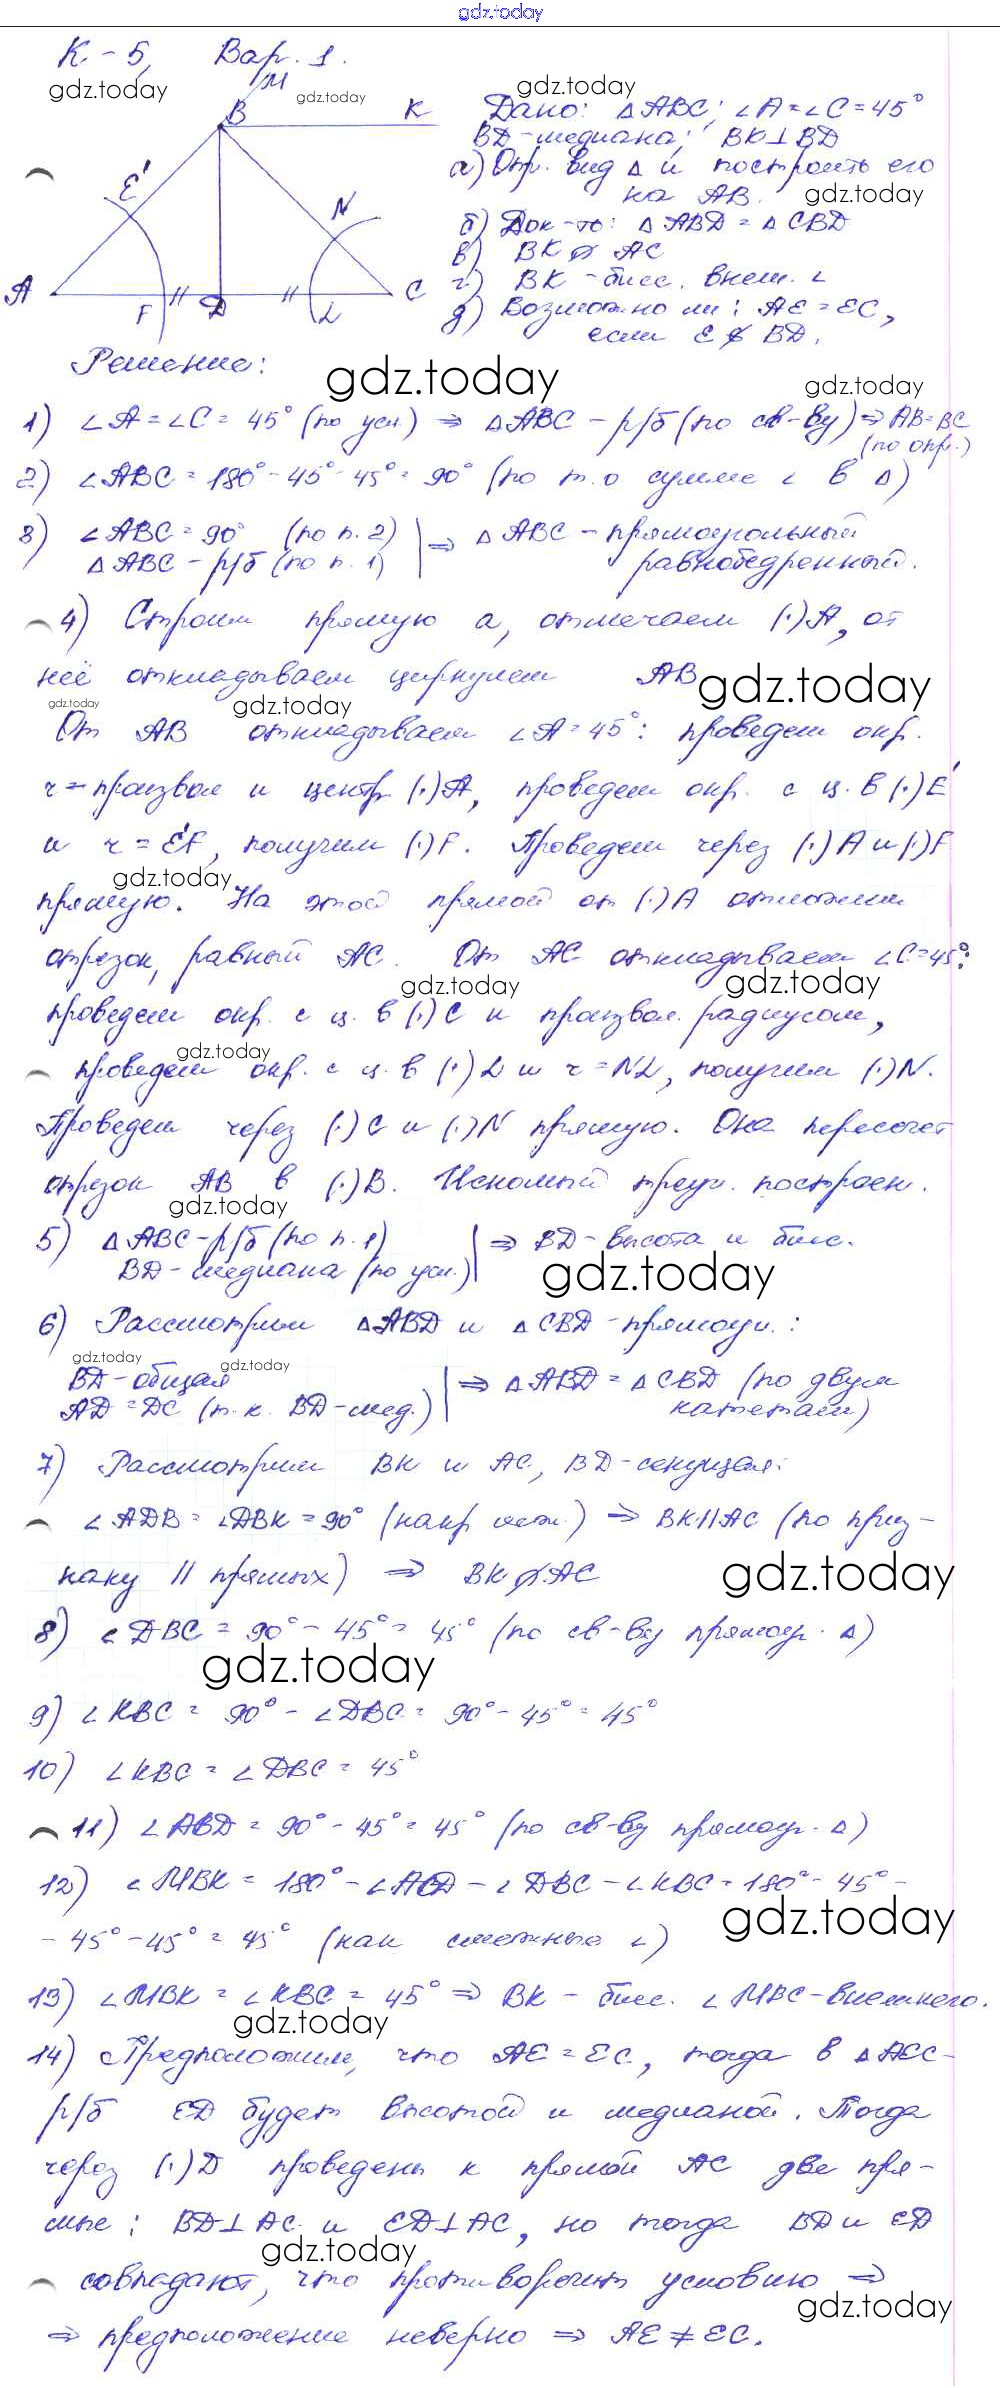 gdz.today
К-5, Вар. 1.
M
B
K
E'
N
A
F
D
L
C
Дано: △ABC; ∠A=∠C=45°
BD-медиана; BK⊥BD
а) Опр. вид △ и построить его
на AB.
б) Док-ть: △ABD = △CBD
в) BK ∦ AC
г) BK - бисс. внеш. ∠
д) Возможно ли: AE = EC,
если E ∉ BD.
Решение:
1) ∠A = ∠C = 45° (по усл.) ⇒ △ABC - р/б (по св-ву) ⇒ AB=BC
(по опр.)
2) ∠ABC = 180° - 45° - 45° = 90° (по т. о сумме ∠ в △)
3) ∠ABC = 90° (по п. 2) | ⇒ △ABC - прямоугольный
△ABC - р/б (по п. 1) равнобедренный.
4) Строим прямую a, отмечаем (·)A, от
неё откладываем циркулем AB
От AB откладываем ∠A = 45°: проведем окр.
r = произвол и центр (·)A, проведем окр. с ц. в (·)E'
и r = E'F, получим (·)F. Проведем через (·)A и (·)F
прямую. На этой прямой от (·)A отложим
отрезок, равный AC. От AC откладываем ∠C=45°:
проведем окр. с ц. в (·)C и произвол. радиусом,
проведем окр. с ц. в (·)L и r = NL, получим (·)N.
Проведем через (·)C и (·)N прямую. Она пересечет
отрезок AB в (·)B. Искомый треуг. построен.
5) △ABC - р/б (по п. 1) | ⇒ BD - высота и бисс.
BD - медиана (по усл.)
6) Рассмотрим △ABD и △CBD - прямоуг.:
BD - общая | ⇒ △ABD = △CBD (по двум
AD = DC (т. к. BD - мед.) катетам)
7) Рассмотрим BK и AC, BD - секущая:
∠ADB = ∠DBK = 90° (накр леж.) ⇒ BK || AC (по приз-
наку || прямых) ⇒ BK ∦ AC
8) ∠DBC = 90° - 45° = 45° (по св-ву прямоуг. △)
9) ∠KBC = 90° - ∠DBC = 90° - 45° = 45°
10) ∠KBC = ∠DBC = 45°
11) ∠ABD = 90° - 45° = 45° (по св-ву прямоуг. △)
12) ∠MBK = 180° - ∠ABD - ∠DBC - ∠KBC = 180° - 45° -
- 45° - 45° = 45° (как смежные ∠)
13) ∠MBK = ∠KBC = 45° ⇒ BK - бисс. ∠MBC - внешнего.
14) Предположим, что AE = EC, тогда в △AEC -
р/б ED будет высотой и медианой. Тогда
через (·)D проведены к прямой AC две пря-
мые: BD⊥AC и ED⊥AC, но тогда BD и ED
совпадают, что противоречит условию ⇒
⇒ предположение неверно ⇒ AE ≠ EC.